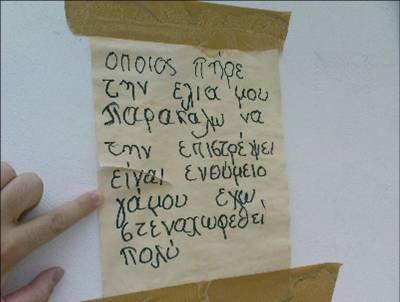 οποιος πήρε
την ελια μου
παρακαλω να
την επιστρέψει
είναι ενθύμειο
γάμου εχω
στεναχωρεθεί
πολύ